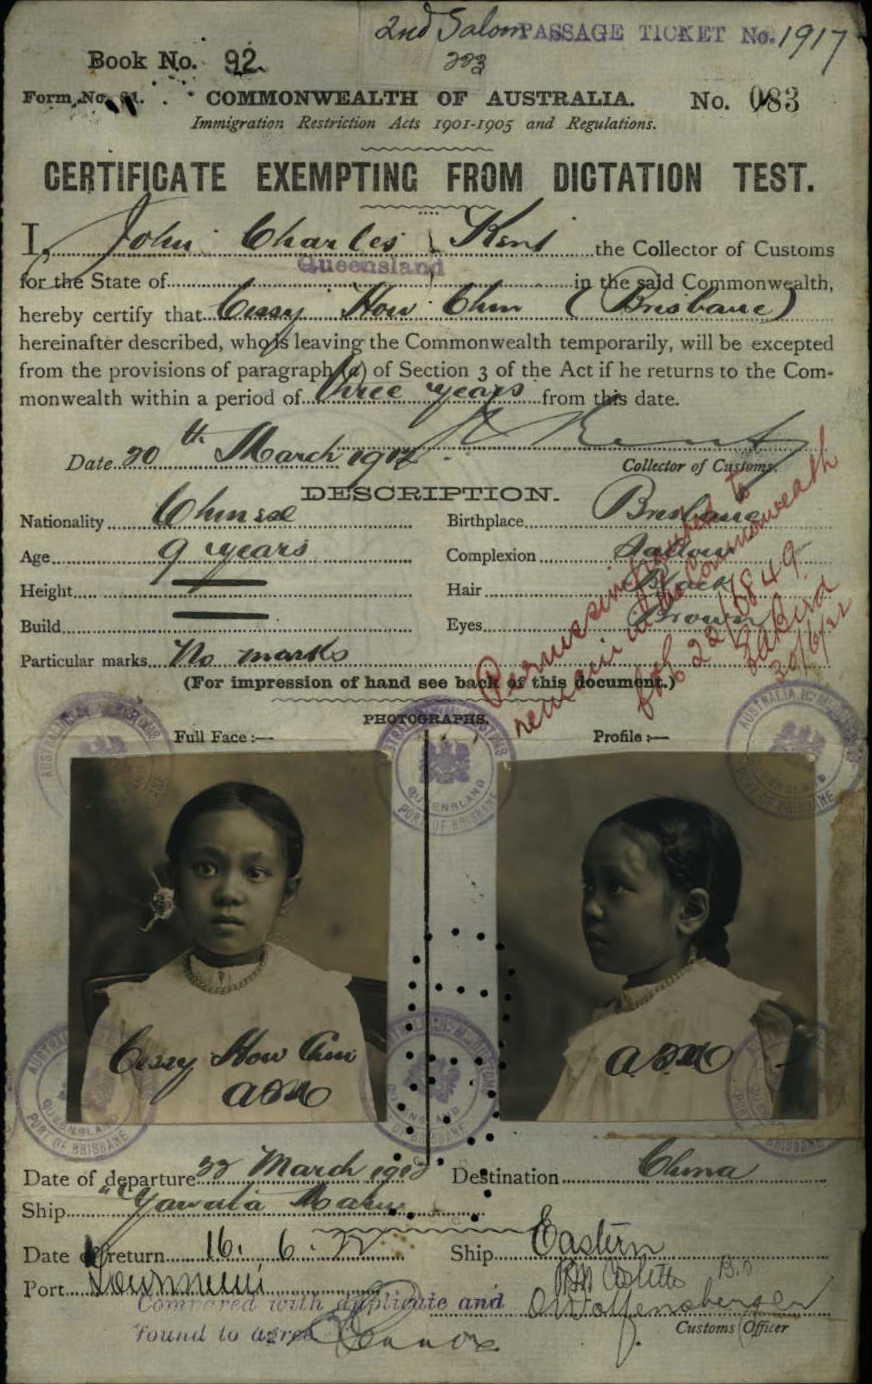 2nd Saloon PASSAGE TICKET No. 1917
Book No. 92
Form No. 21. COMMONWEALTH OF AUSTRALIA. No. 083
Immigration Restriction Acts 1901-1905 and Regulations.
CERTIFICATE EXEMPTING FROM DICTATION TEST.
I, John Charles Kent the Collector of Customs
for the State of Queensland in the said Commonwealth,
hereby certify that Cissy How Chin (Brisbane)
hereinafter described, who is leaving the Commonwealth temporarily, will be excepted
from the provisions of paragraph (a) of Section 3 of the Act if he returns to the Com-
monwealth within a period of three years from this date.
Date 20th March
Collector of Customs.
DESCRIPTION.
Nationality Chinese Birthplace Brisbane
Age 9 years Complexion Sallow
Height Hair Black
Build Eyes Brown
Particular marks No marks
Permission
remain in the Commonwealth
22/1849
20/6/22
(For impression of hand see back of this document.)
PHOTOGRAPHS.
Full Face :— Profile :—
QUEENSLAND
PORT OF BRISBANE
Cissy How Chin
Date of departure 22 March Destination China
Ship "Yawata Maru
Date of return 16. 6. 22 Ship Eastern
Port
Compared with duplicate and
found to agree
Customs Officer